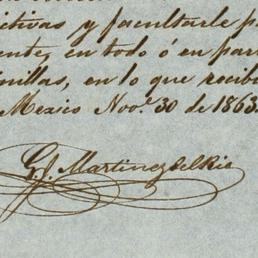 ctivas y facultarle p
ente, en todo ó en par
nillas, en lo que recibi
Mexico Nov.e 30 de 1863.
G. Martinez del Rio